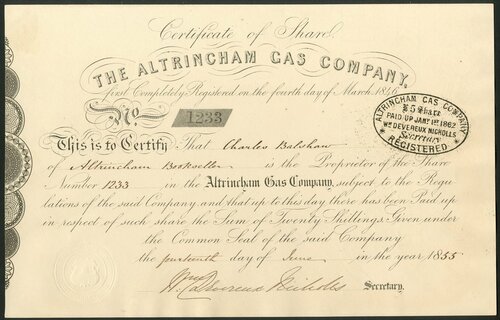 Certificate of Share.
THE ALTRINCHAM GAS COMPANY,
first Completely Registered on the fourth day of March 1846
No. 1233
ALTRINCHAM GAS COMPANY
£5 Share
PAID UP JANY 1ST 1862
WM DEVEREUX NICHOLLS
Secretary
REGISTERED
This is to Certify That Charles Balshaw
of Altrincham Bookseller is the Proprietor of the Share
Number 1233 in the Altrincham Gas Company, subject to the Regu
lations of the said Company and that up to this day there has been Paid up
in respect of such share the Sum of Twenty Shillings. Given under
the Common Seal of the said Company
the fourteenth day of June in the year 1855
Wm Devereux Nicholls Secretary.